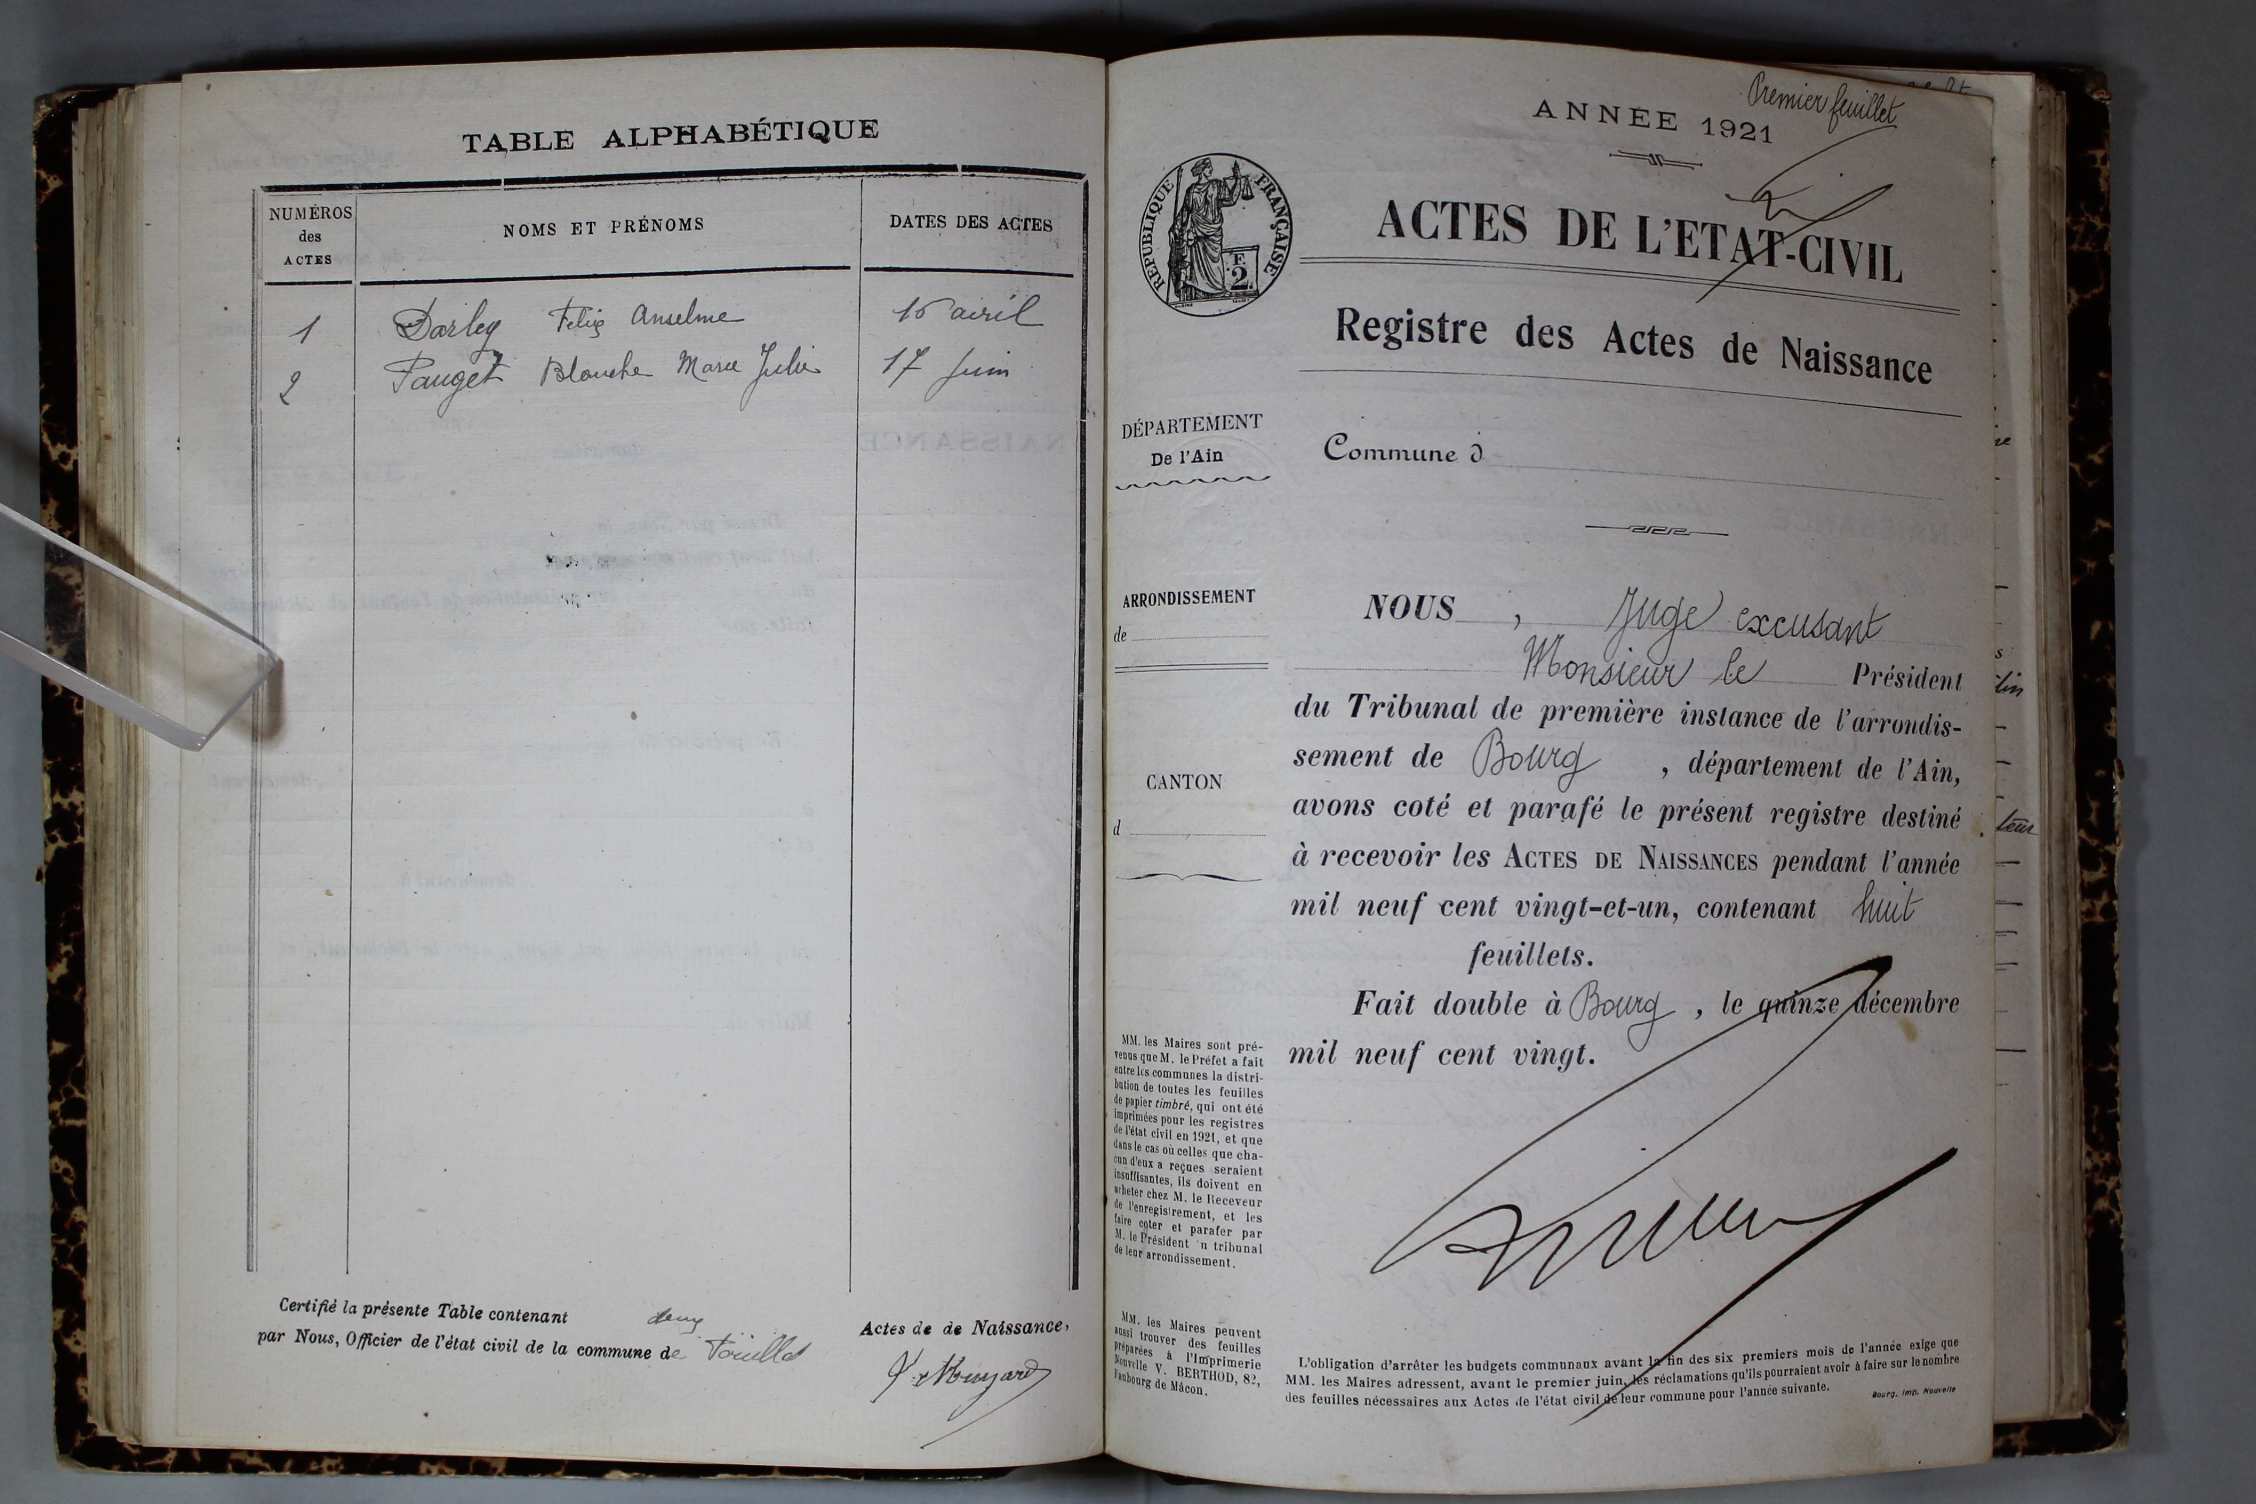 TABLE ALPHABÉTIQUE
NUMÉROS
des
ACTES
NOMS ET PRÉNOMS
DATES DES ACTES
1 Darley Felix Anselme 16 avril
2 Pauget Blanche Marie Julie 17 Juin
Certifié la présente Table contenant deux Actes de de Naissance,
par Nous, Officier de l'état civil de la commune de
Premier feuillet
ANNÉE 1921
RÉPUBLIQUE FRANÇAISE
F.
2
ACTES DE L'ETAT-CIVIL
Registre des Actes de Naissance
DÉPARTEMENT
De l'Ain
Commune d
ARRONDISSEMENT
de
CANTON
d
NOUS , Juge excusant
Monsieur le Président
du Tribunal de première instance de l'arrondis-
sement de Bourg , département de l'Ain,
avons coté et parafé le présent registre destiné
à recevoir les ACTES DE NAISSANCES pendant l'année
mil neuf cent vingt-et-un, contenant huit
feuillets.
Fait double à Bourg , le quinze décembre
mil neuf cent vingt.
MM. les Maires sont pré-
venus que M. le Préfet a fait
entre les communes la distri-
bution de toutes les feuilles
de papier timbré, qui ont été
imprimées pour les registres
de l'état civil en 1921, et que
dans le cas où celles que cha-
cun d'eux a reçues seraient
insuffisantes, ils doivent en
acheter chez M. le Receveur
de l'enregistrement, et les
faire coter et parafer par
M. le Président n tribunal
de leur arrondissement.
MM. les Maires peuvent
aussi trouver des feuilles
préparées à l'Imprimerie
Nouvelle V. BERTHOD, 82,
Faubourg de Mâcon.
L'obligation d'arrêter les budgets communaux avant la fin des six premiers mois de l'année exige que
MM. les Maires adressent, avant le premier juin, les réclamations qu'ils pourraient avoir à faire sur le nombre
des feuilles nécessaires aux Actes de l'état civil de leur commune pour l'année suivante.
Bourg, Imp. Nouvelle